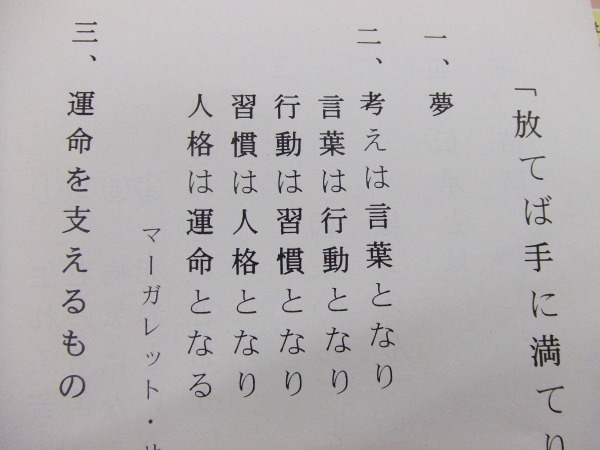 「放てば手に満てり
一、夢
二、考えは言葉となり
言葉は行動となり
行動は習慣となり
習慣は人格となり
人格は運命となる
マーガレット・サ
三、運命を支えるもの